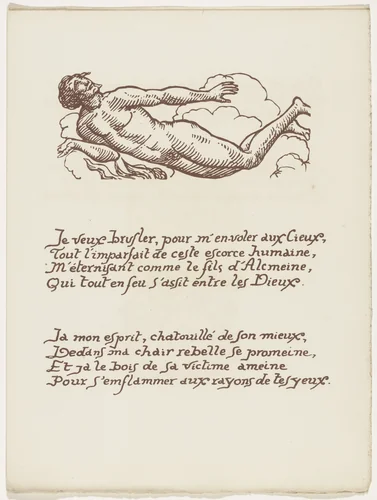 Je veux brusler, pour m'en voler aux Cieux,
Tout l'imparfait de ceste escorce humaine,
M'éternisant comme le fils d'Alcmeine,
Qui tout en feu s'assit entre les Dieux.
Ja mon esprit, chatouillé de son mieux,
Dedans ma chair rebelle se promeine,
Et ja le bois de sa victime ameine
Pour s'emflammer aux rayons de tes yeux.